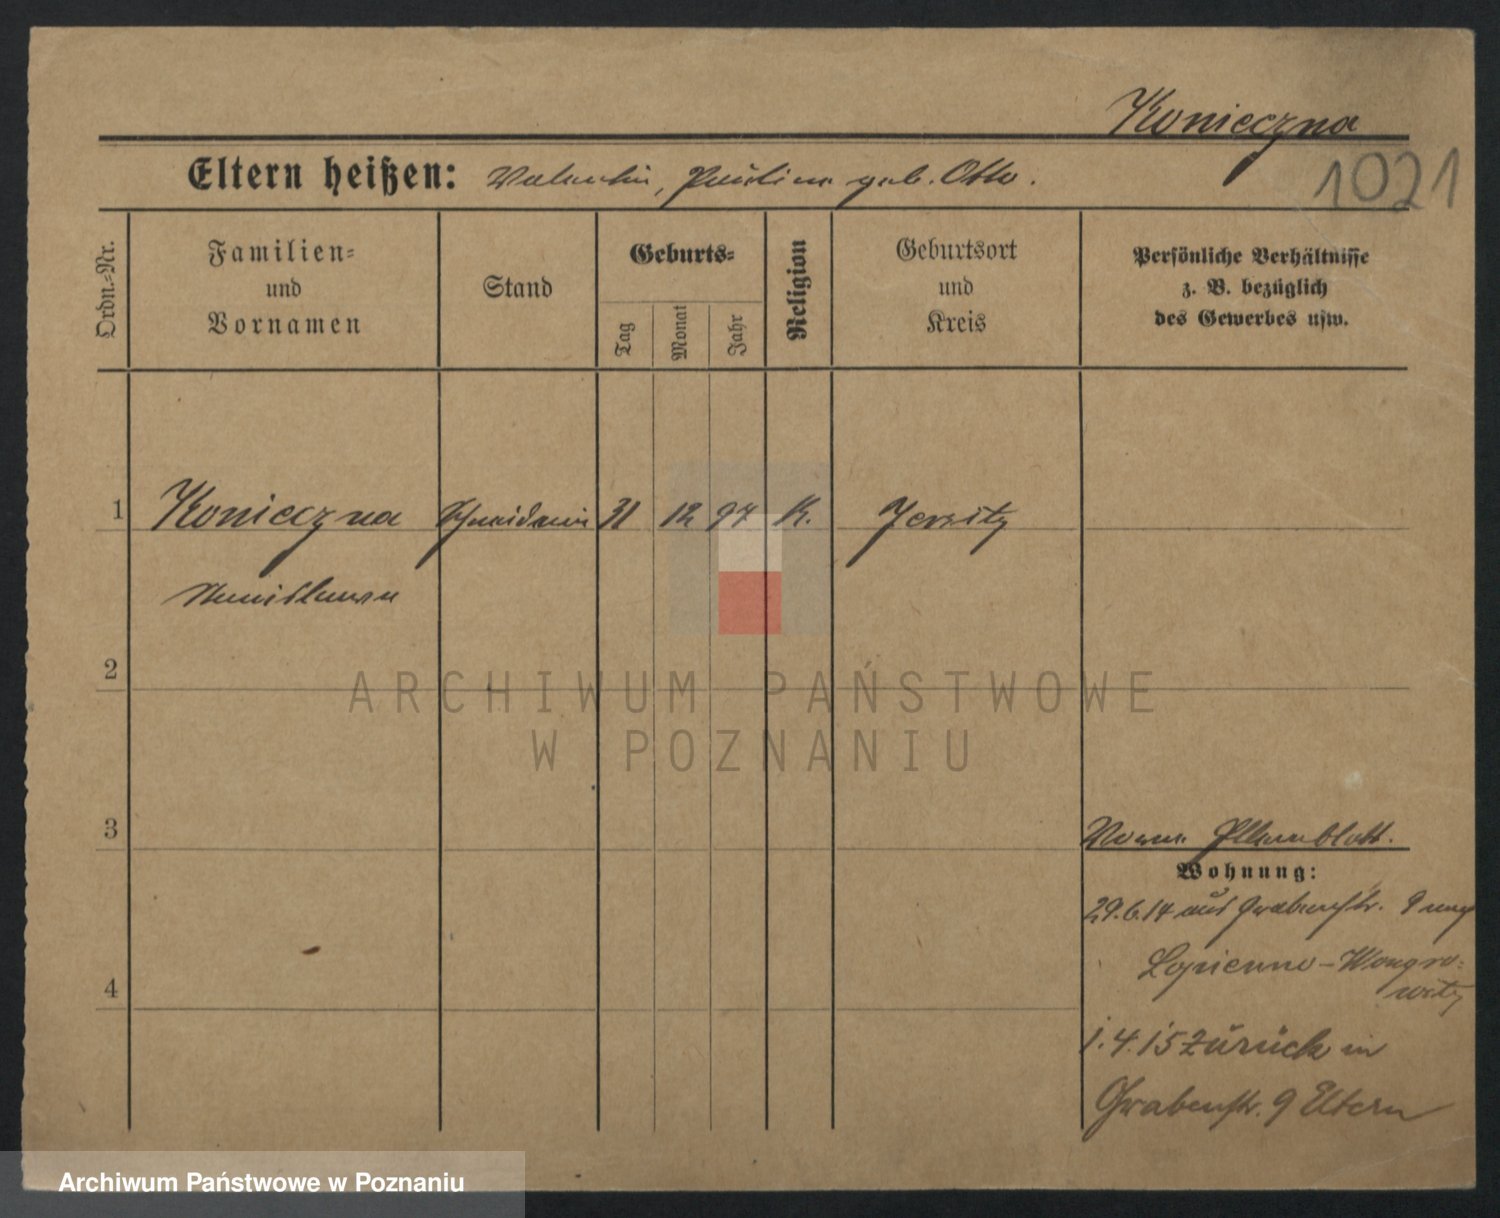 Konieczna
1021
Eltern heißen: Valentin, Paulina geb. Otto.
Ordn.-Nr.
Familien-
und
Vornamen
Stand
Geburts-
Tag
Monat
Jahr
Religion
Geburtsort
und
Kreis
Persönliche Verhältnisse
z. B. bezüglich
des Gewerbes usw.
1 Konieczna Schneiderin 31 12 97 K. Jersitz
Stanislawa
2
3
Wohnung:
29.6.14 aus Grabenstr. 9 nach
Lopienno-Wongro-
witz
4
1.4.15 zurück in
Grabenstr. 9 Eltern
ARCHIWUM PAŃSTWOWE
W POZNANIU
Archiwum Państwowe w Poznaniu